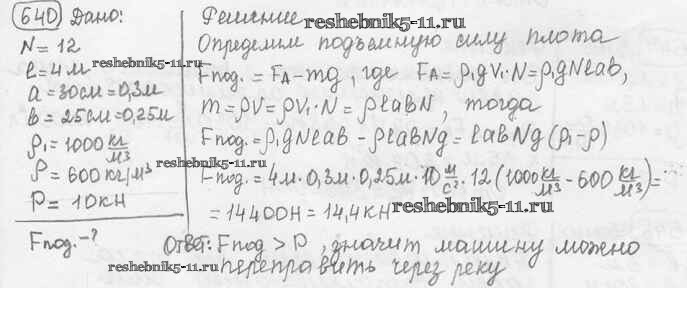 640 Дано:
N = 12
l = 4м
a = 30см = 0,3м
b = 25см = 0,25м
ρ₁ = 1000 кг/м³
ρ = 600 кг/м³
P = 10кН
Fпод. - ?
Решение
Определим подъемную силу плота
Fпод. = FA - mg, где FA = ρ₁gV₁·N = ρ₁gNlab,
m = ρV = ρV₁·N = ρlabN, тогда
Fпод. = ρ₁gNlab - ρlabNg = labNg(ρ₁ - ρ)
Fпод. = 4м·0,3м·0,25м·10 м/с²·12(1000 кг/м³ - 600 кг/м³) =
= 14400Н = 14,4кН
Ответ: Fпод > P, значит машину можно
переправить через реку
reshebnik5-11.ru
reshebnik5-11.ru
reshebnik5-11.ru
reshebnik5-11.ru